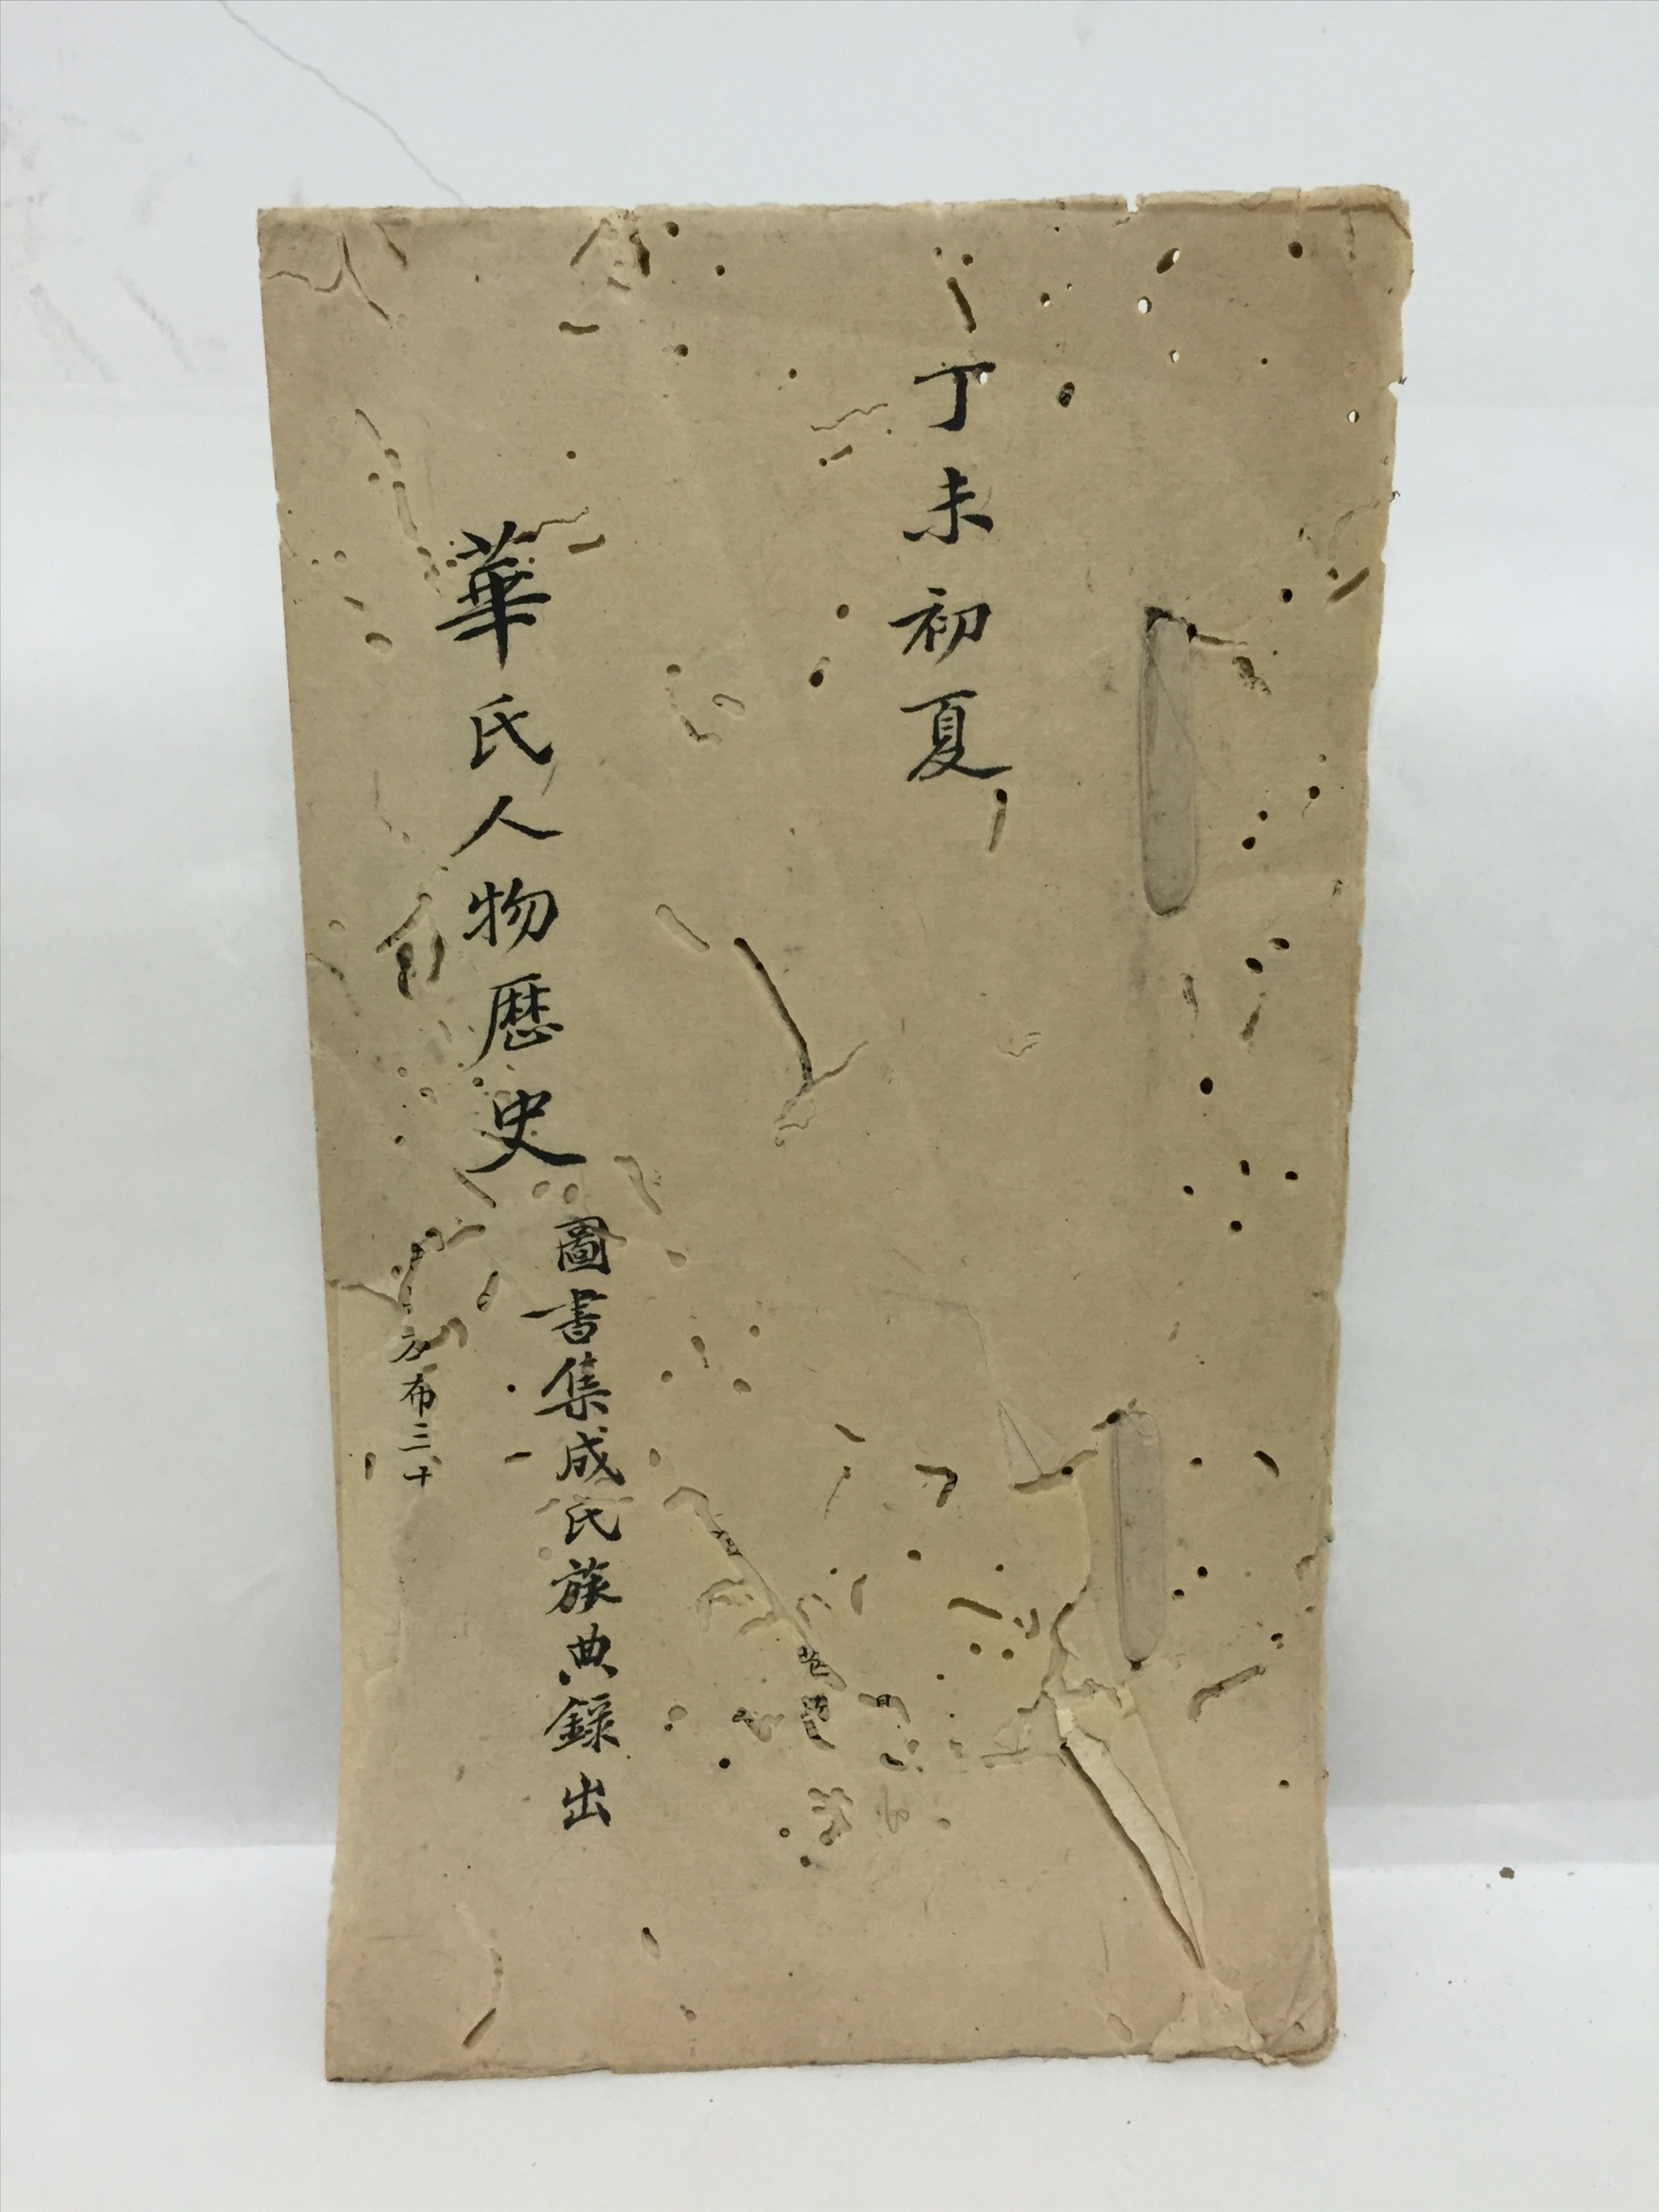 丁未初夏
華氏人物歷史
圖書集成氏族典錄出
布三十